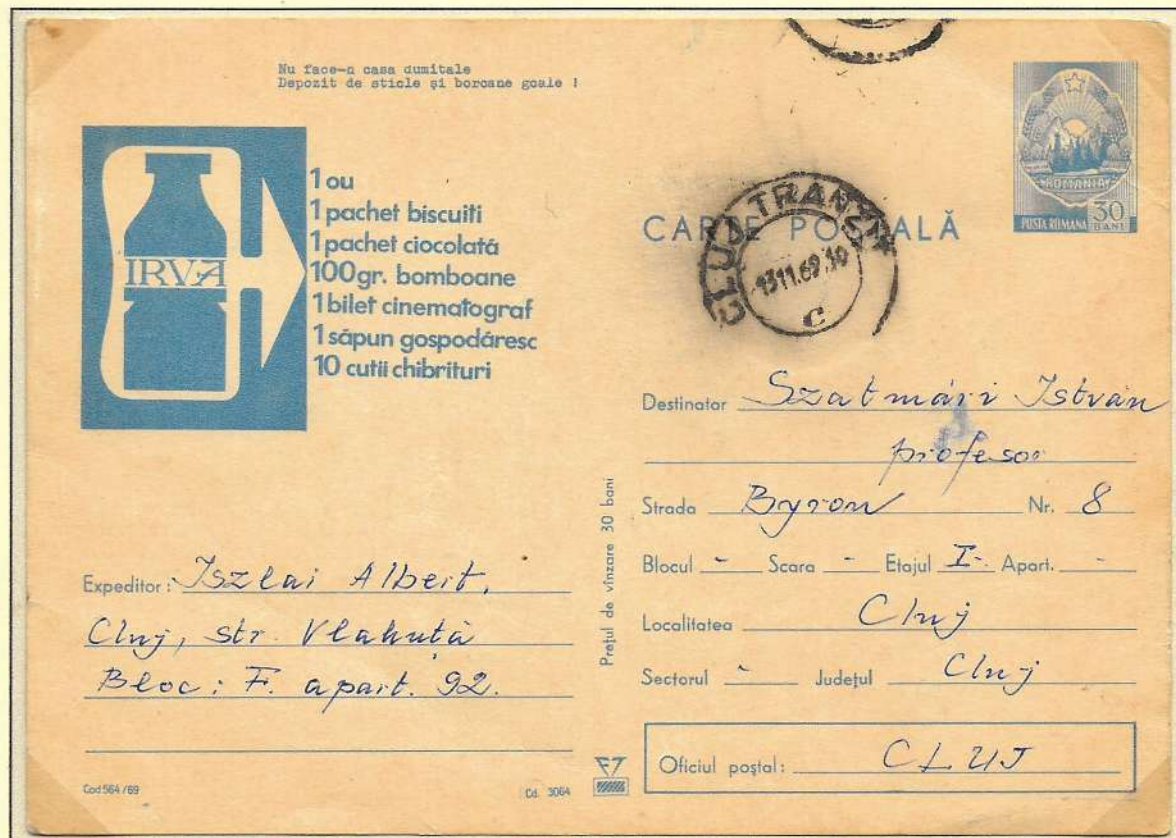 Nu face-n casa dumitale
Depozit de sticle și borcane goale !
IRVA
1 ou
1 pachet biscuiti
1 pachet ciocolată
100gr. bomboane
1 bilet cinematograf
1 săpun gospodăresc
10 cutii chibrituri
ROMANIA
POSTA ROMANA 30 BANI
CARTE POȘTALĂ
CLUJ TRANZIT
1311.69.10
C
Destinator Szatmári István
profesor
Strada Byron Nr. 8
Blocul - Scara - Etajul I-. Apart. -
Localitatea Cluj
Sectorul - Județul Cluj
Oficiul poștal: CLUJ
Prețul de vînzare 30 bani
Expeditor: Iszlai Albert,
Cluj, str. Vlahuță
Bloc: F. apart. 92.
Cod 564/69
Cd. 3064